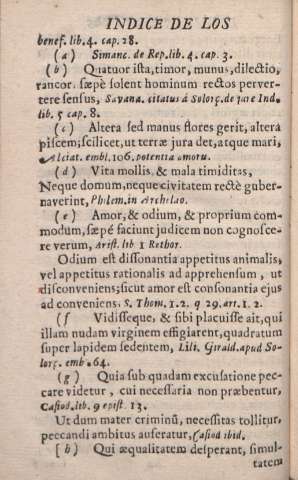 INDICE DE LOS
benef. lib. 4. cap. 28.
(a) Simanc. de Rep. lib. 4. cap. 3.
(b) Quatuor ista, timor, munus, dilectio,
rancor. sæpè solent hominum rectos perver-
tere sensus, Savana. citatus à Solorç. de jure Ind.
lib. 5 cap. 8.
(c) Altera sed manus flores gerit, altera
piscem; scilicet, ut terræ jura det, atque mari,
Alciat. embl. 106. potentia amoru.
(d) Vita mollis. & mala timiditas,
Neque domum, neque civitatem rectè guber-
naverint, Philem. in Archelao.
(e) Amor, & odium, & proprium com-
modum, sæpé faciunt judicem non cognosce-
re verum, Arist. lib. 1 Rethor.
Odium est dissonantia appetitus animalis,
vel appetitus rationalis ad apprehensum, ut
disconveniens; sicut amor est consonantia ejus
ad conveniens. S. Thom. 1. 2. q 29. art. 1. 2.
(f Vidisseque, & sibi placuisse ait, qui
illam nudam virginem effigiarent, quadratum
super lapidem sedentem, Lili. Girald. apud So-
lorç. emb. 64.
(g) Quia sub quadam excusatione pec-
care videtur, cui necessaria non præbentur,
Casiod. lib. 9 epist. 13.
Ut dum mater criminū, necessitas tollitur,
peccandi ambitus auferatur, Casiod ibid.
[h) Qui æqualitatem desperant, simul-
tatem